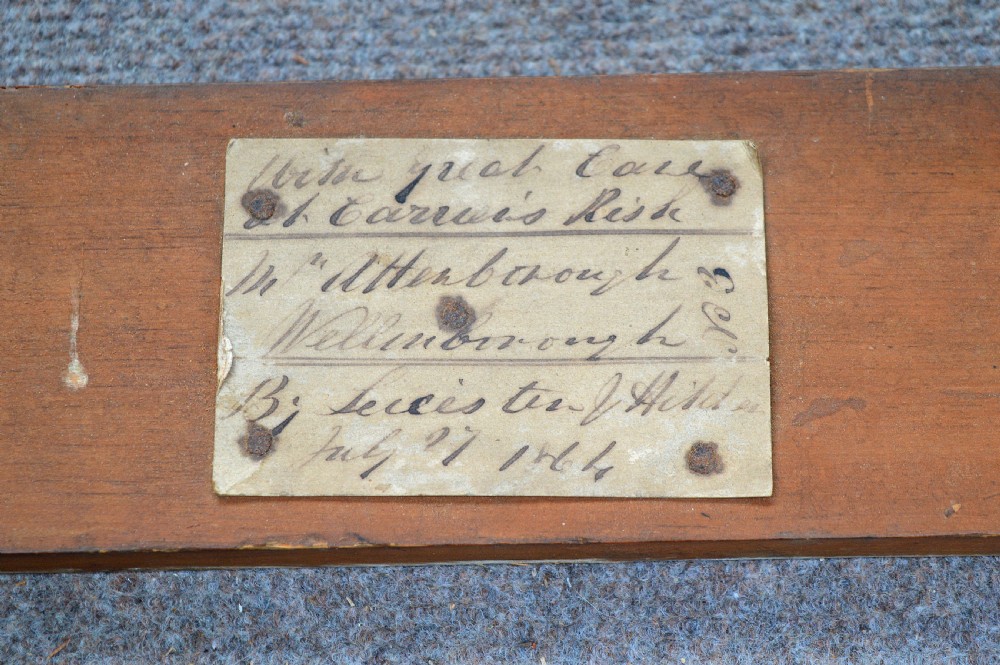 With great Care
at Carriers Risk
Mr Attenborough
Wellinborough
No 3
By Leicester & Hitchin
July 27 1864